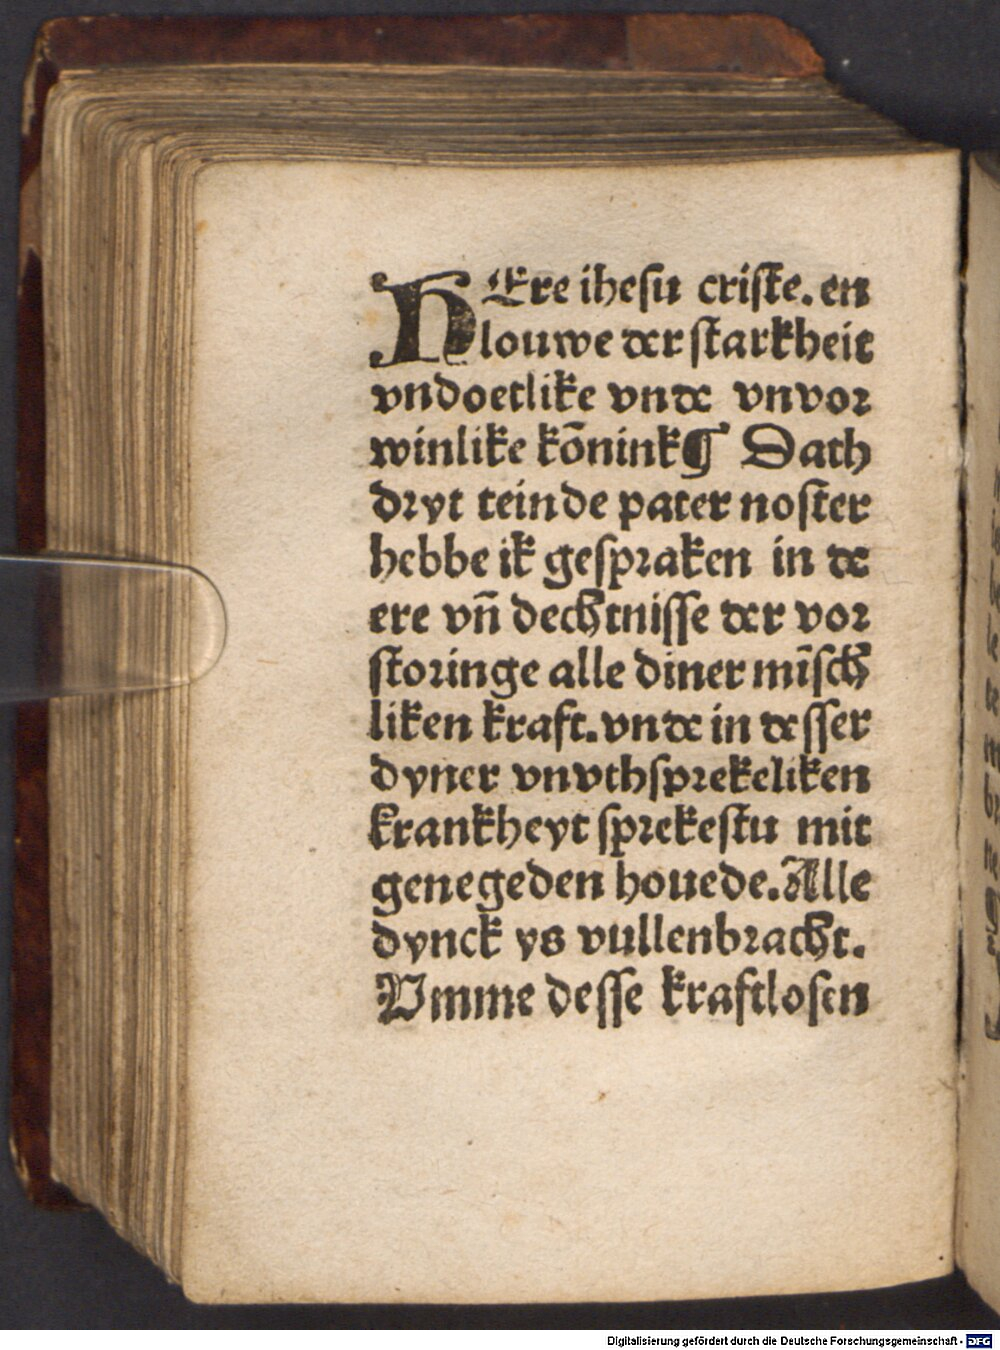 HEre ihesu criste. en
louwe der starkheit
vndoetlike vnde vnvor
winlike kōnink¶ Dath
dryt teinde pater noster
hebbe ik gespraken in de
ere vn̄ dechtnisse der vor
storinge alle diner mīsch
liken kraft. vnde in desser
dyner vnvthsprekeliken
krankheyt sprekestu mit
genegeden houede. Alle
dynck ys vullenbracht.
Vmme desse kraftlosen
Digitalisierung gefördert durch die Deutsche Forschungsgemeinschaft - DFG